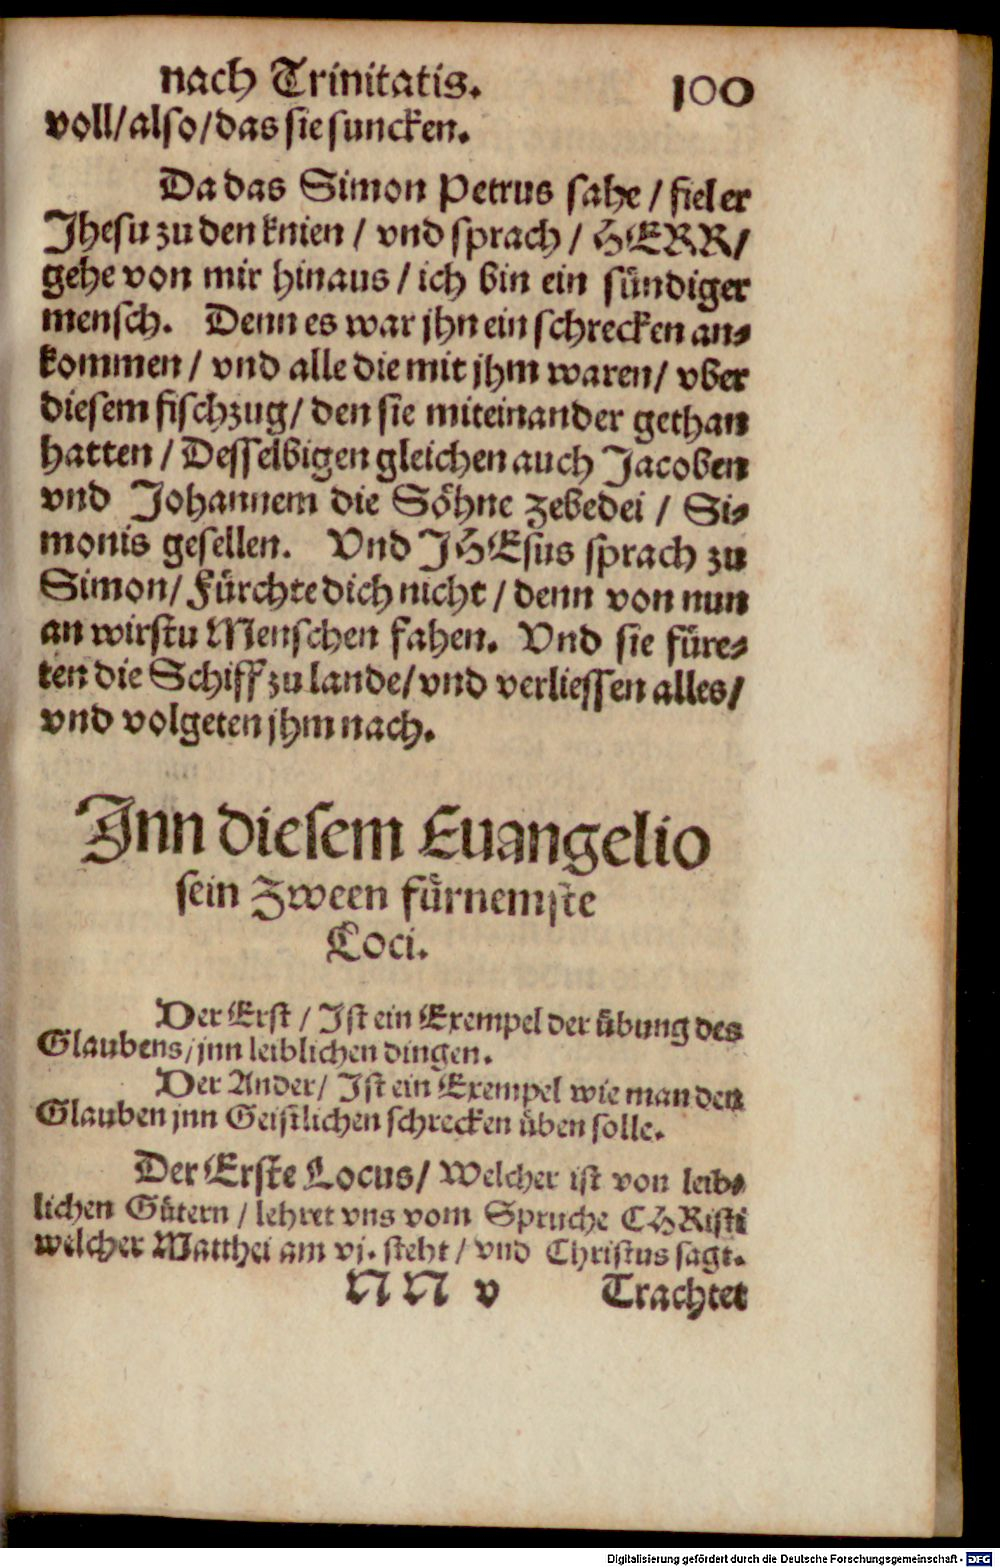 nach Trinitatis. 100
voll/also/das sie suncken.
Da das Simon Petrus sahe / fiel er
Jhesu zu den knien / vnd sprach / HERR/
gehe von mir hinaus / ich bin ein sündiger
mensch. Denn es war jhn ein schrecken an-
kommen / vnd alle die mit jhm waren/ vber
diesem fischzug/ den sie miteinander gethan
hatten / Desselbigen gleichen auch Jacoben
vnd Johannem die Söhne zebedei / Si-
monis gesellen. Vnd JHEsus sprach zu
Simon/ Fürchte dich nicht / denn von nun
an wirstu Menschen fahen. Vnd sie füre-
ten die Schiff zu lande/ vnd verliessen alles/
vnd volgeten jhm nach.
Jnn diesem Euangelio
sein Zween fürnemste
Loci.
Der Erst / Jst ein Exempel der übung des
Glaubens/ jnn leiblichen dingen.
Der Ander/ Jst ein Exempel wie man den
Glauben jnn Geistlichen schrecken üben solle.
Der Erste Locus/ Welcher ist von leib-
lichen Gütern / lehret vns vom Spruche CHRisti
welcher Matthei am vj. steht / vnd Christus sagt.
NN v Trachtet
Digitalisierung gefördert durch die Deutsche Forschungsgemeinschaft - DFG